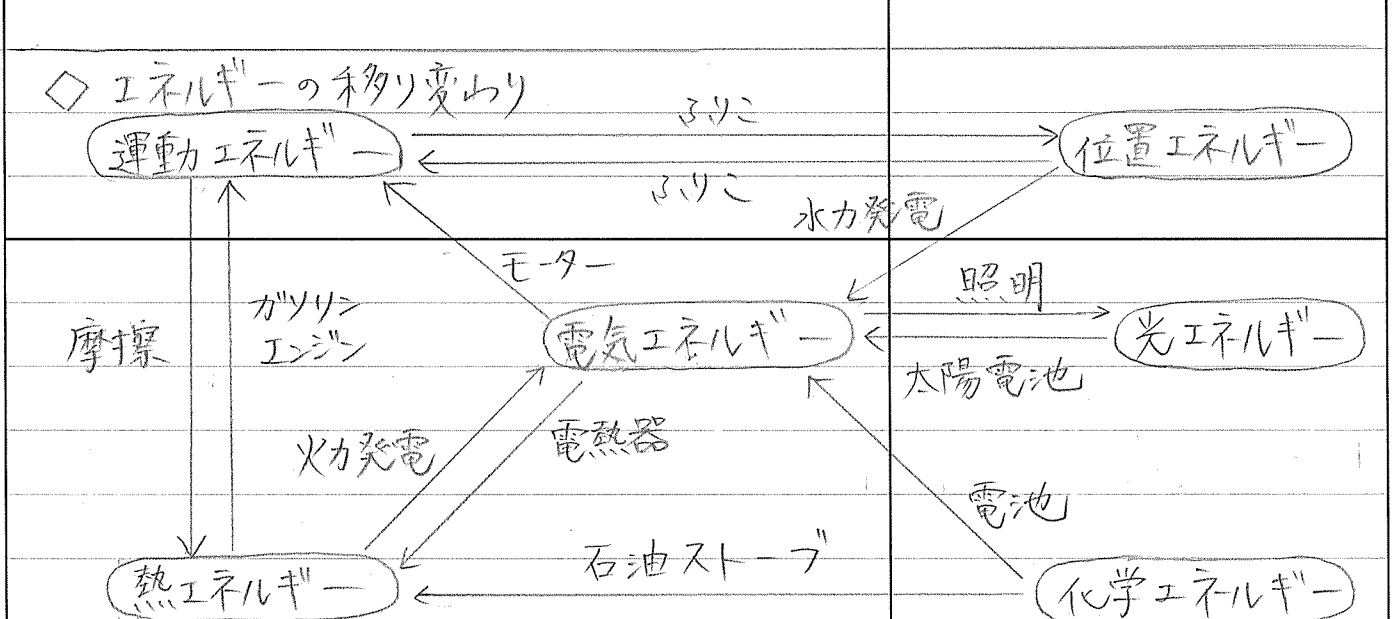 ◇ エネルギーの移り変わり
ふりこ
運動エネルギー
位置エネルギー
ふりこ
水力発電
モーター
照明
ガソリン
エンジン
摩擦
電気エネルギー
光エネルギー
太陽電池
火力発電
電熱器
電池
石油ストーブ
熱エネルギー
化学エネルギー